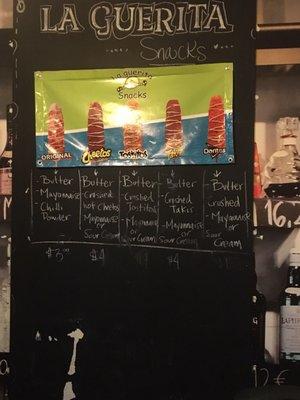 LA GUERITA
Snacks
La Guerita
Snacks
ORIGINAL
Cheetos
Takis
Doritos
- Butter
- Mayonaise
- Chilli
Powder
- Butter
- Crushed
Hot Cheetos
- Mayonaise
or
Sour Cream
- Butter
- Crushed
Tostitos
- Mayonaise
or
Sour Cream
- Butter
- Crushed
Takis
- Mayonaise
or
Sour Cream
- Butter
- Crushed
- Mayonaise
or
Sour Cream
$4
$4
16,2